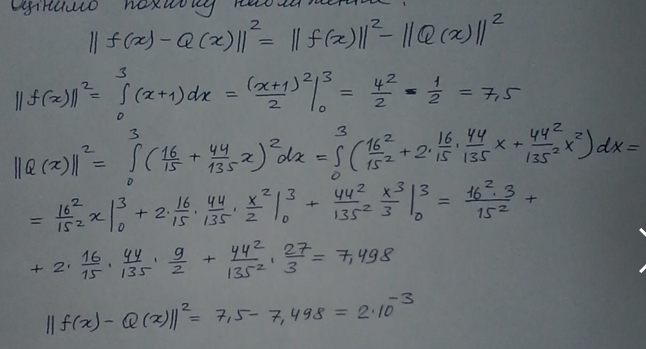 Оцінимо похибку наближення:
||f(x) - Q(x)||² = ||f(x)||² - ||Q(x)||²
||f(x)||² = ∫₀³ (x+1)dx = (x+1)²/2 |₀³ = 4²/2 - 1/2 = 7,5
||Q(x)||² = ∫₀³ (16/15 + 44/135 x)² dx = ∫₀³ (16²/15² + 2·16/15·44/135 x + 44²/135² x²) dx =
= 16²/15² x |₀³ + 2·16/15·44/135·x²/2 |₀³ + 44²/135² x³/3 |₀³ = 16²·3/15² +
+ 2·16/15·44/135·9/2 + 44²/135²·27/3 = 7,498
||f(x) - Q(x)||² = 7,5 - 7,498 = 2·10⁻³